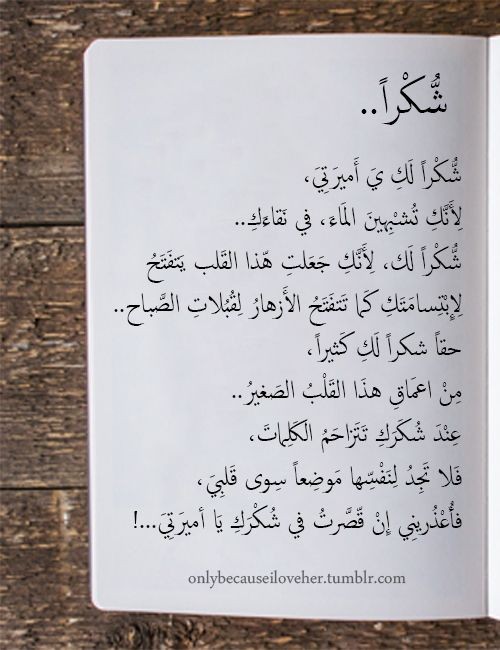 شُكْراً..
شُكْراً لَكِ يَ أَميرَتِيَ،
لِأَنَّكِ تُشبْهِينَ المَاءَ، في نَقاءَكِ..
شُكْراً لَك، لِأَنَّكِ جَعَلتِ هّذا القَلب يَتفَتَحُ
لِإبْتِسامَتَكِ كَما تَتفَتَحُ الأَزهارُ لِقُبُلاتِ الصَّباح..
حقاً شكراً لَكِ كَثيراً،
مِنْ اعمَاقِ هذَا القَلْبُ الصَغيرُ..
عِنْدَ شُكَرَكِ تَتَزاحَمُ الكَلِماتَ،
فَلا تَجِدُ لِنَفْسِّها مَوضِعاً سِوى قَلبِيَ،
فأُعْذُريني إنْ قّصَّرتُ في شُكْرَكِ يَا أميرَتِيَ...!
onlybecauseiloveher.tumblr.com